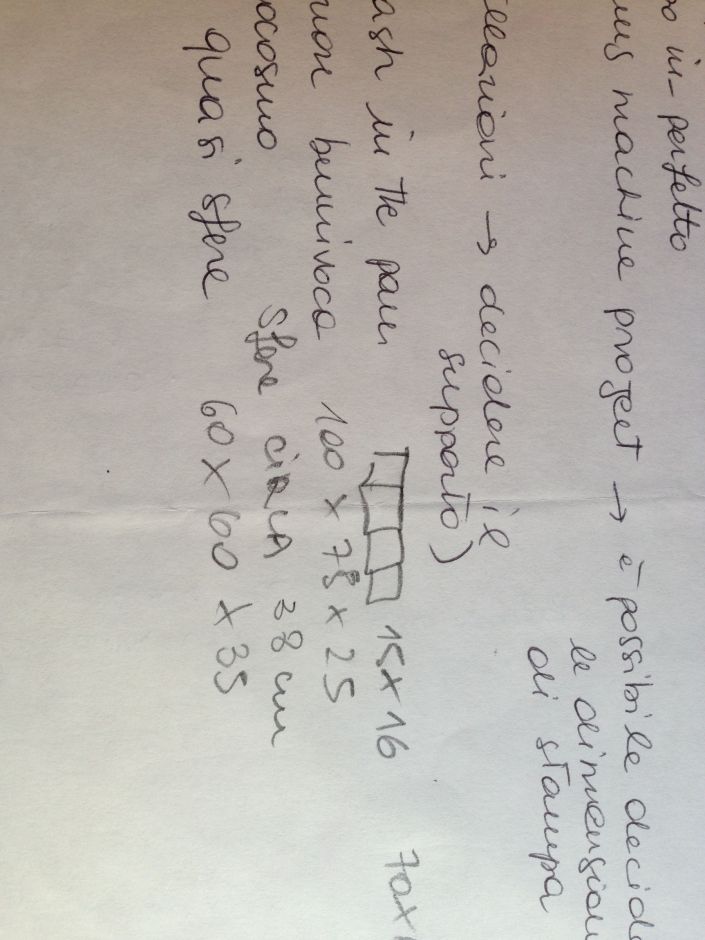 in-perfetto
machine project → è possibile decide
le dimensioni
di stampa
decidere il
supporto)
ash in the pan 15 x 16 70x
biunivoca 100 x 78 x 25
ocosmo sfere circa 38 cm
quasi sfere 60 x 60 x 35